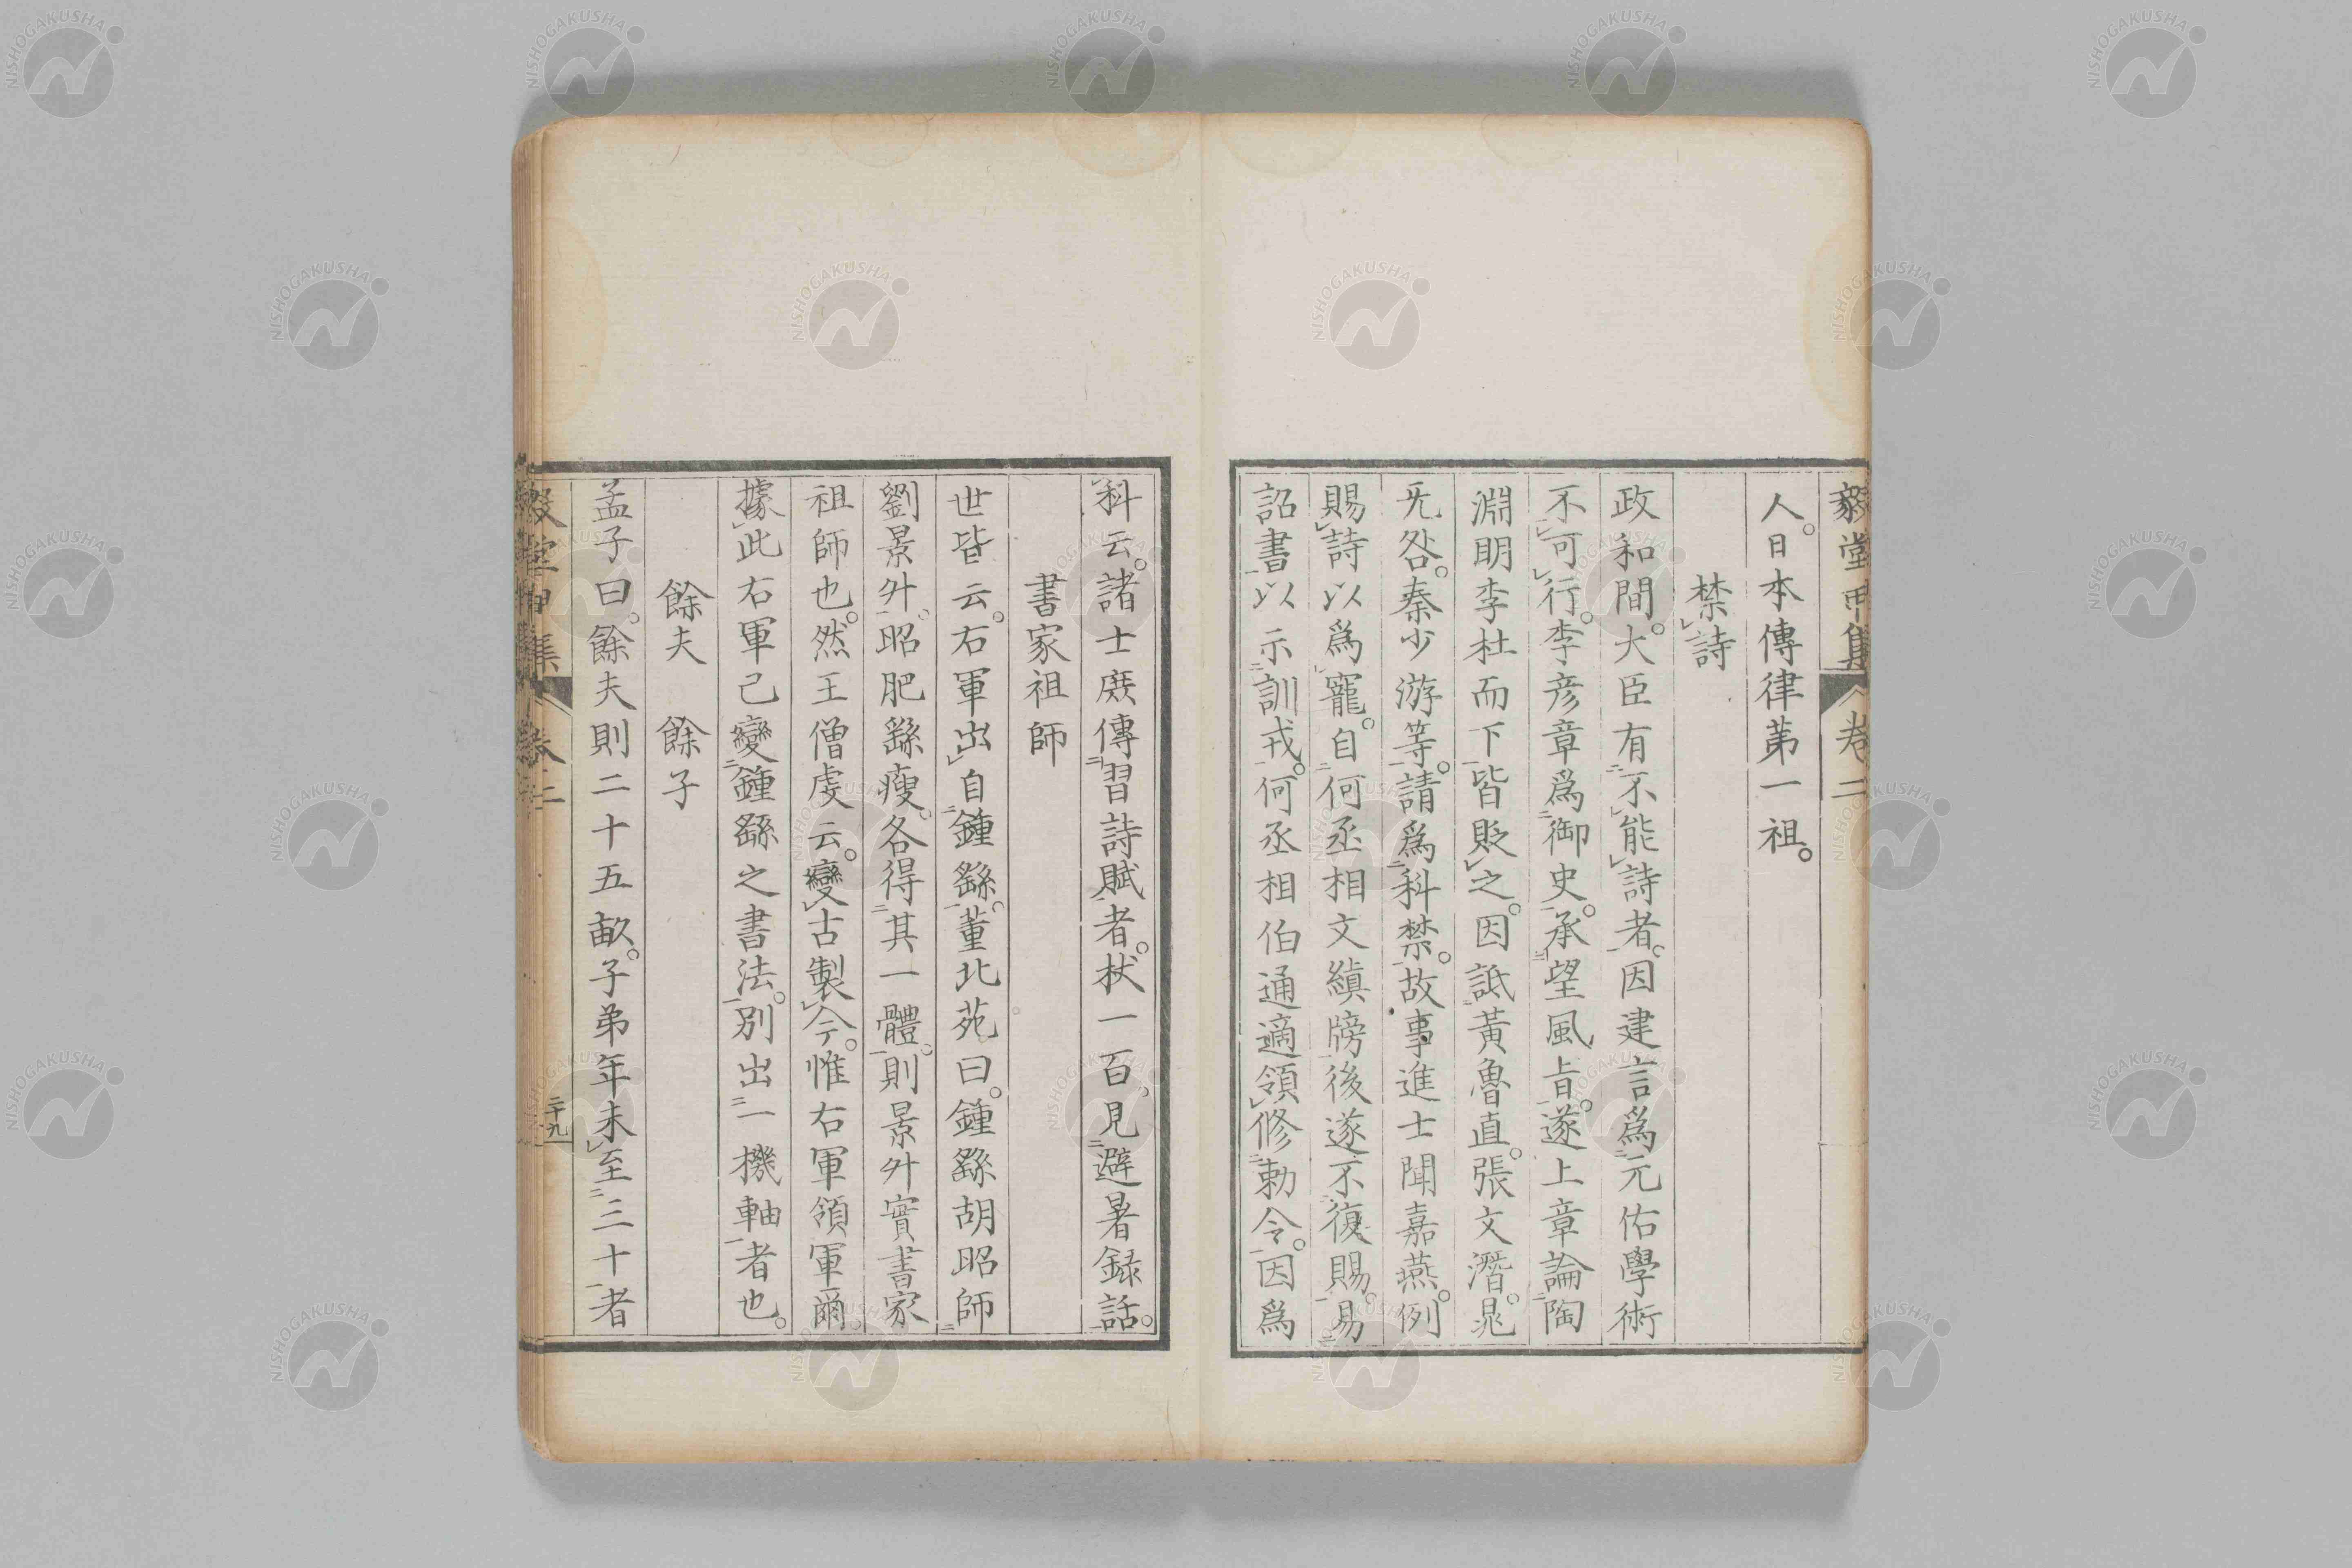 毅堂甲集 卷二
人。日本傳律第一祖。
禁詩
政和間。大臣有不能詩者。因建言爲元佑學術
不可行。李彦章爲御史。承望風旨。遂上章論陶
淵明李杜而下皆貶之。因詆黃魯直。張文潛。晁
无咎。秦少游等。請爲科禁。故事進士聞嘉燕。例
賜詩以爲寵。自何丞相文縝牓後遂不復賜。易
詔書以示訓戒。何丞相伯通適領修勅令。因爲
科云。諸士庶傳習詩賦者。杖一百。見避暑録話。
書家祖師
世皆云。右軍出自鍾繇。董北苑曰。鍾繇胡昭師
劉景升。昭肥繇瘦。各得其一體。則景升實書家
祖師也。然王僧虔云。變古製今。惟右軍領軍爾
據此右軍已變鍾繇之書法。別出一機軸者也。
餘夫 餘子
孟子曰。餘夫則二十五畝。子弟年未至三十者
毅堂甲集 卷二
二十九
NISHOGAKUSHA